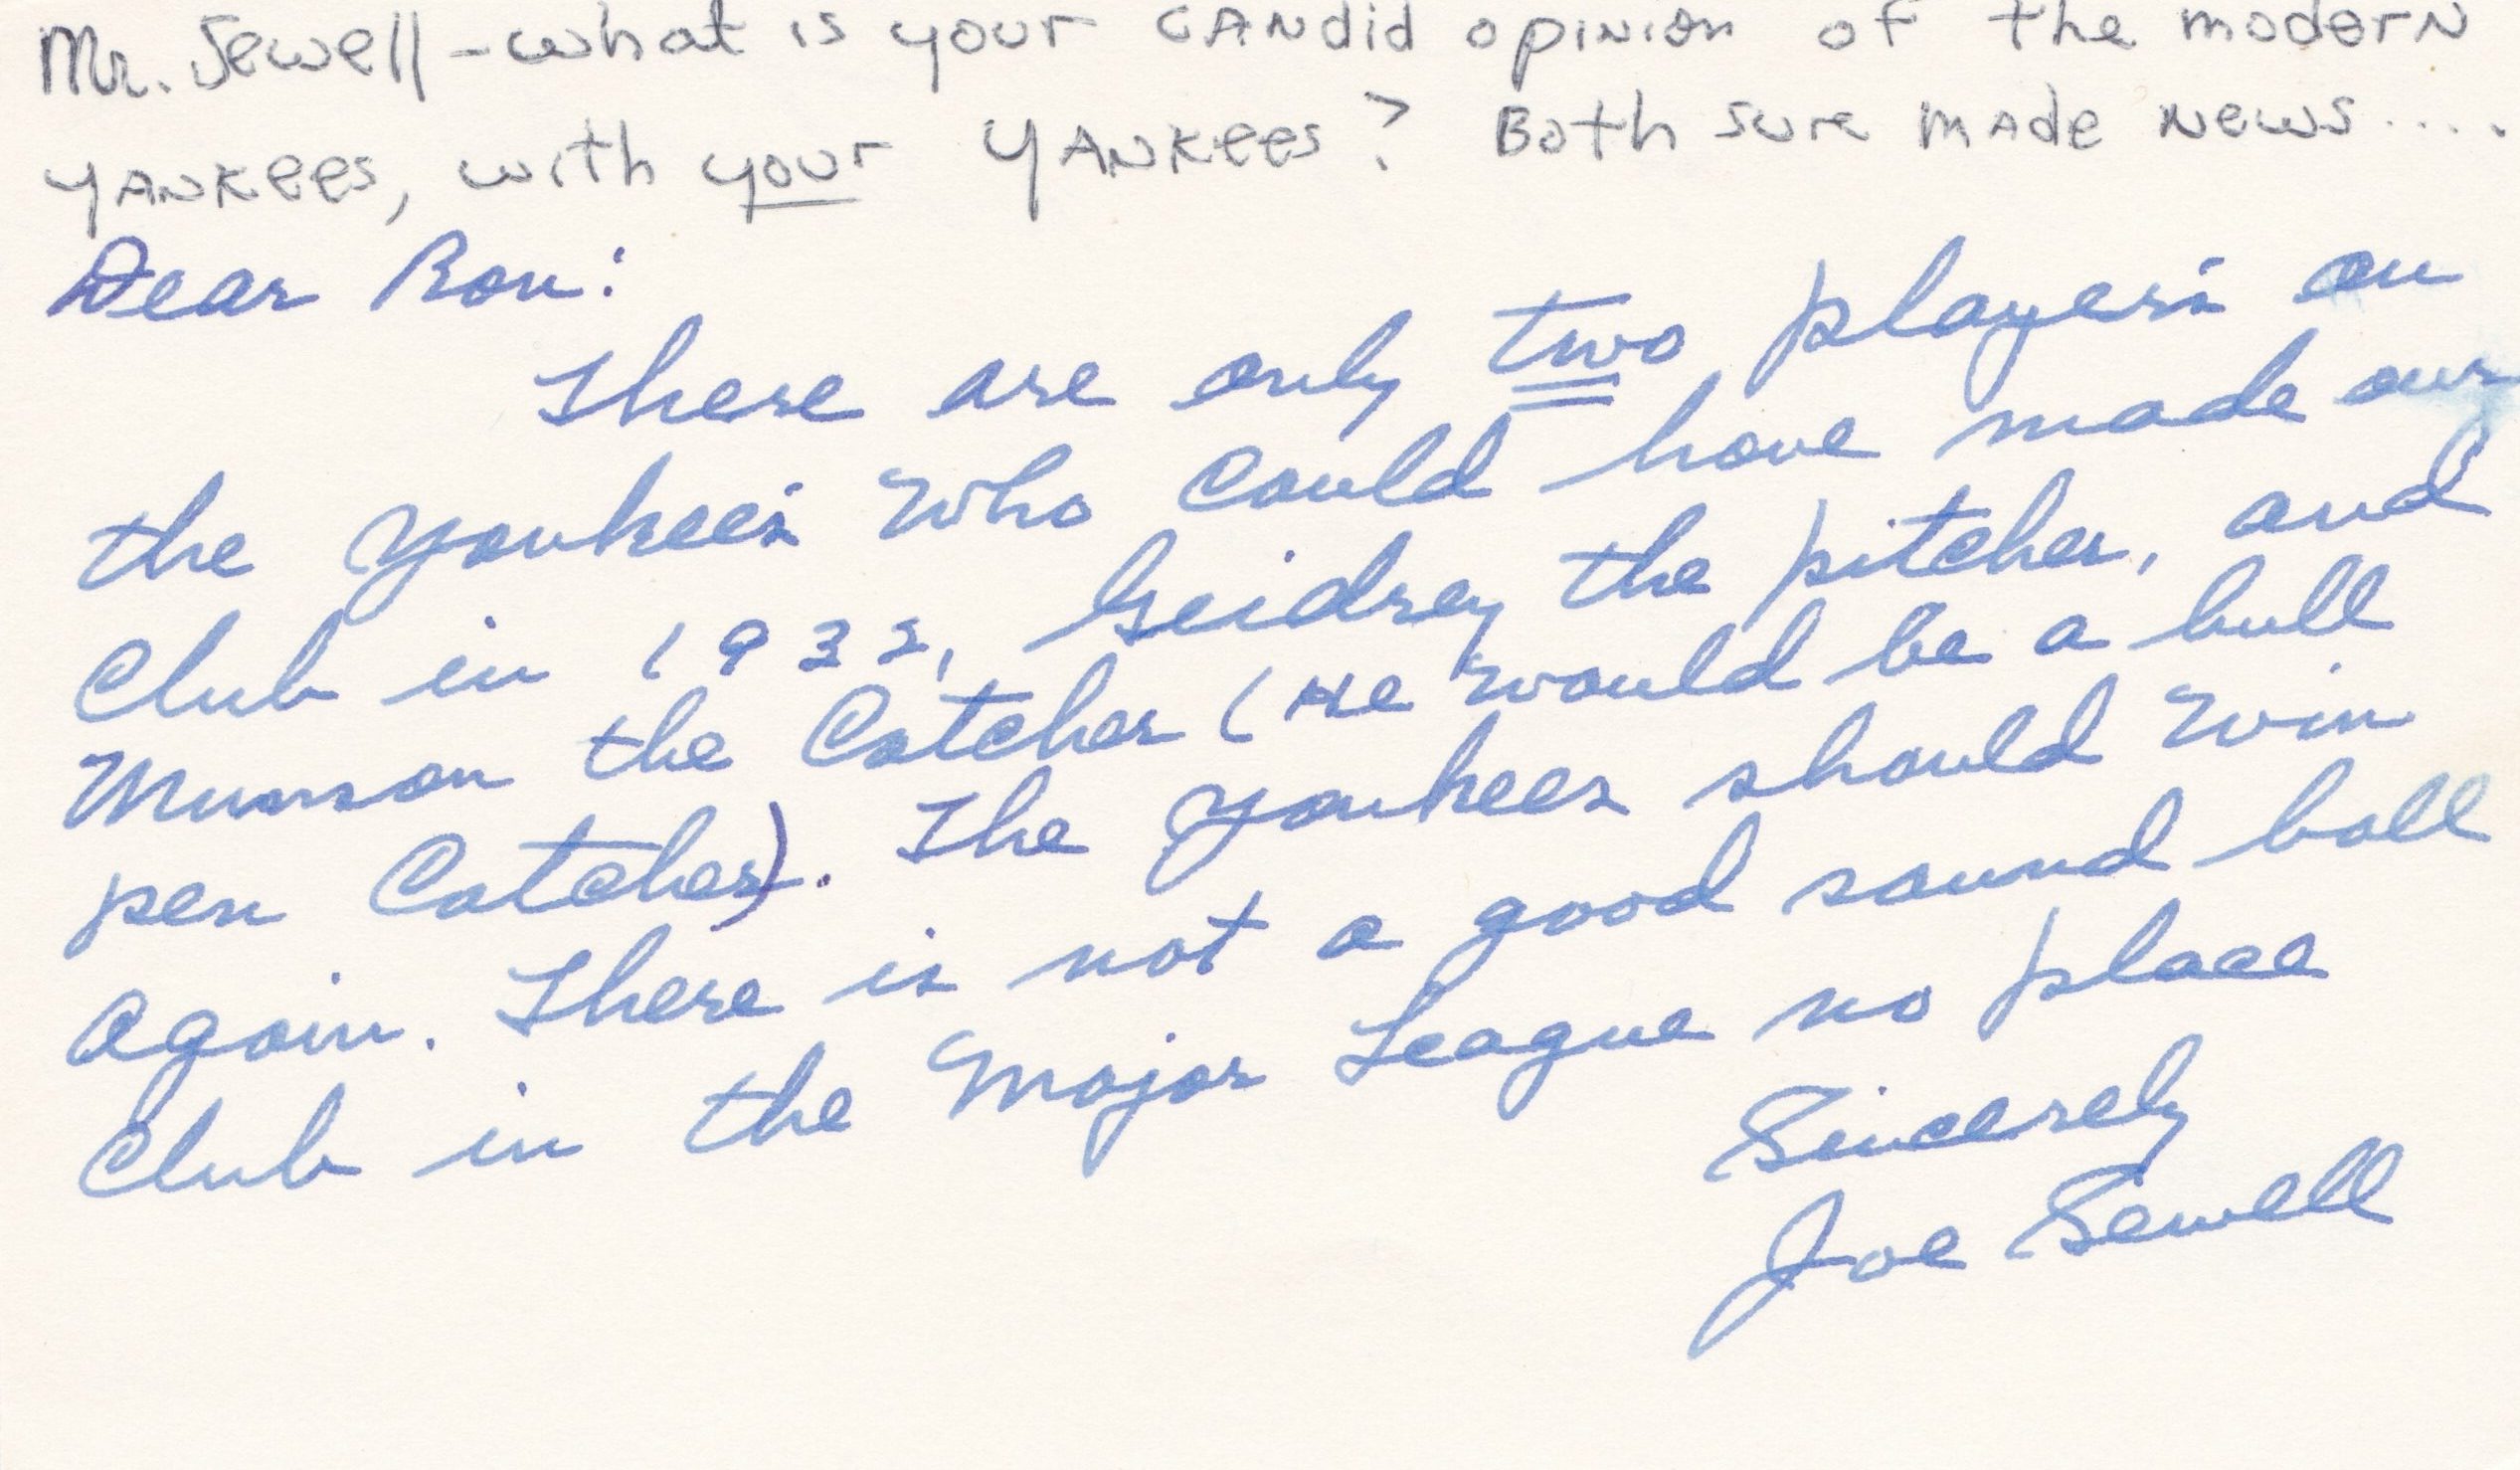 Mr. Sewell - what is your candid opinion of the modern
Yankees, with your Yankees? Both sure made news....
Dear Ron:
There are only two players on
the Yankees who could have made our
Club in 1932, Geidrey the pitcher, and
Munson the Catcher (He would be a bull
pen Catcher). The Yankees should win
again. There is not a good sound ball
Club in the Major League no place
Sincerely
Joe Sewell